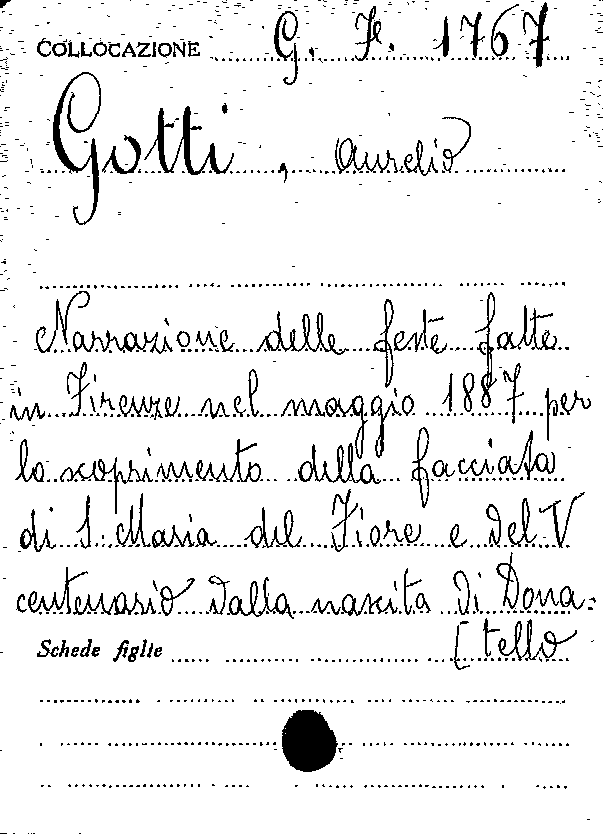 COLLOCAZIONE G. F. 1767
Gotti, Aurelio
Narrazione delle feste fatte
in Firenze nel maggio 1887 per
lo scoprimento della facciata
di S. Maria del Fiore e del V
centenario dalla nascita di Dona=
Schede figlie [tello